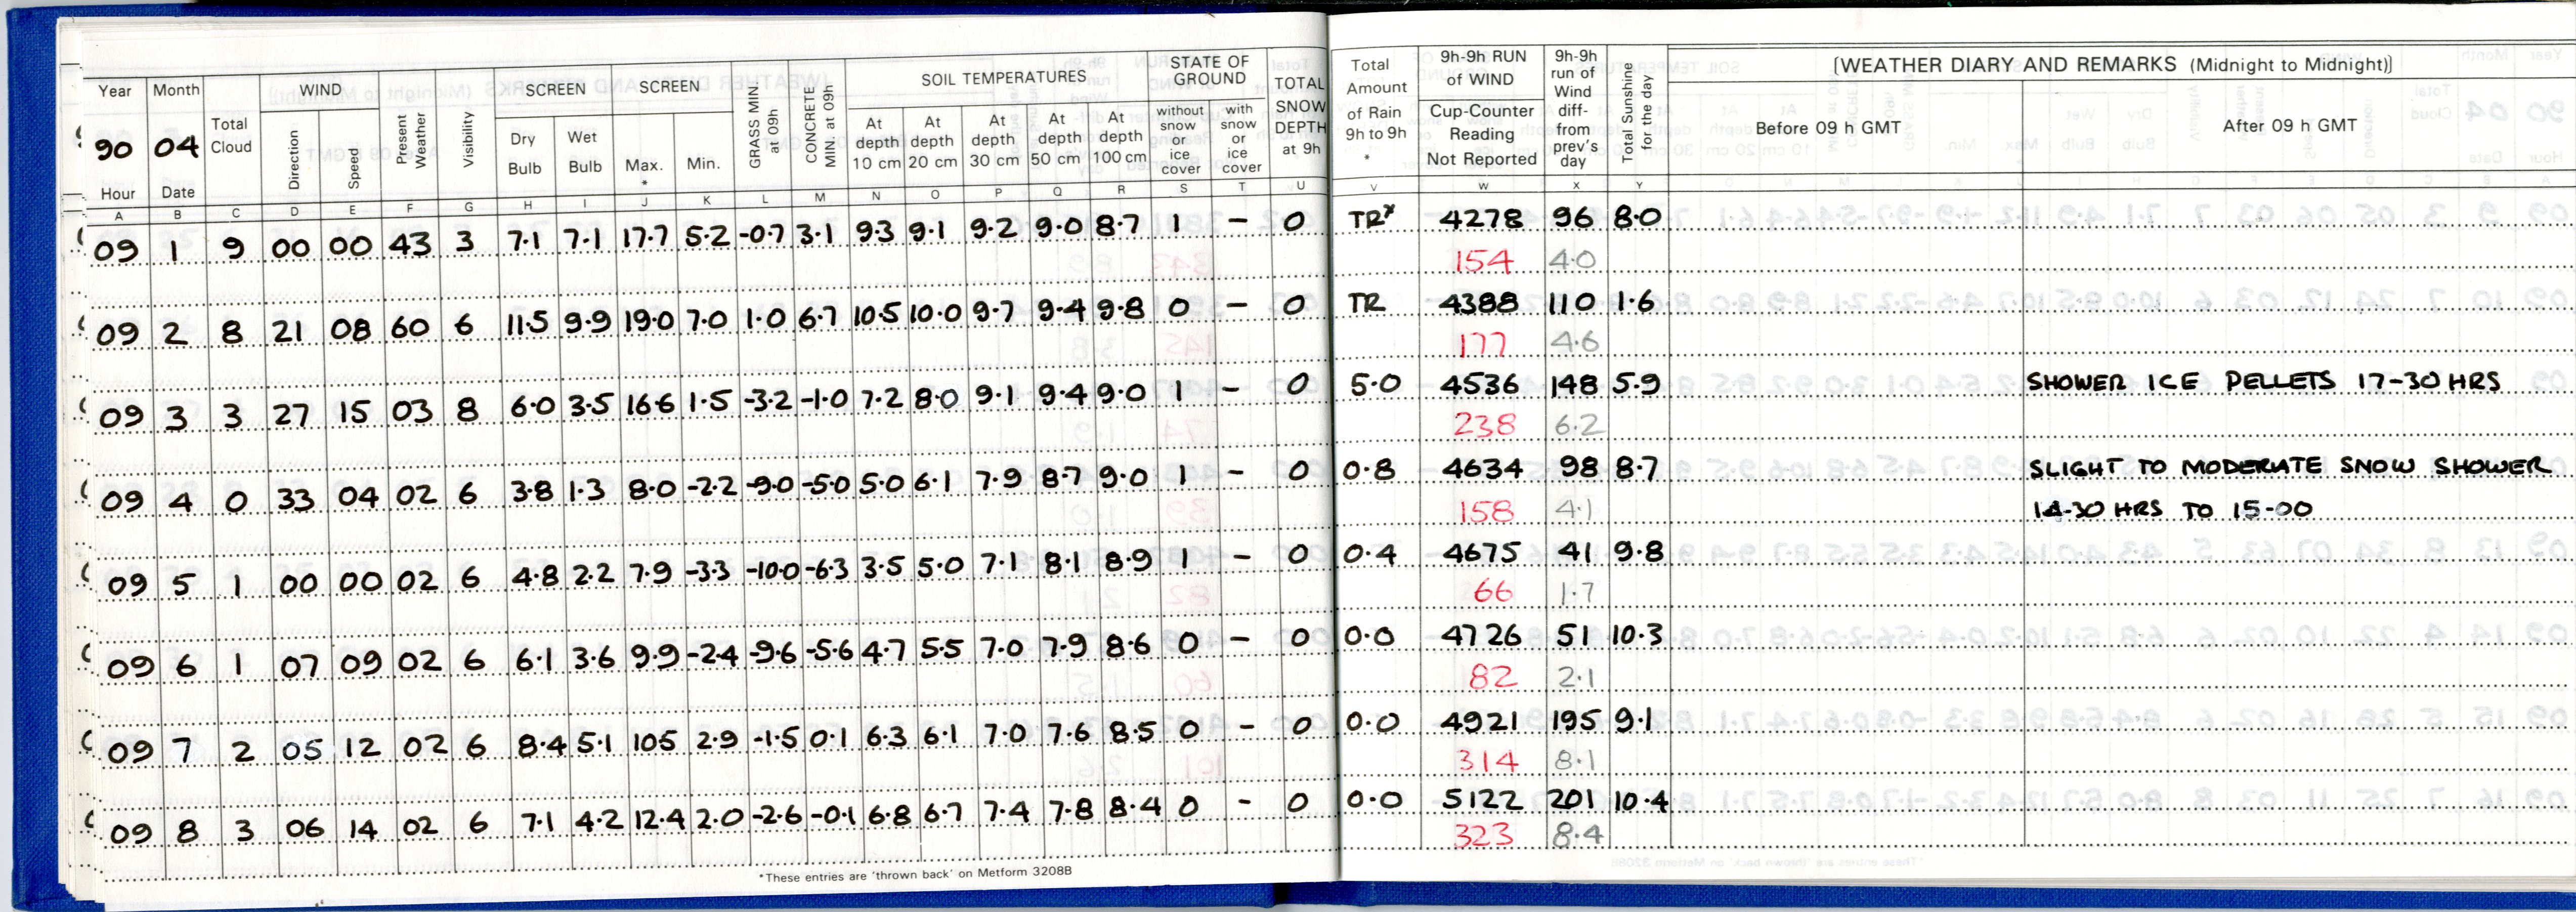 Year Month Total Cloud WIND Present Weather Visibility SCREEN SCREEN GRASS MIN. at 09h CONCRETE MIN. at 09h SOIL TEMPERATURES STATE OF GROUND TOTAL SNOW DEPTH at 9h Total Amount of Rain 9h to 9h * 9h-9h RUN of WIND 9h-9h run of Wind diff- from prev's day Total Sunshine for the day (WEATHER DIARY AND REMARKS (Midnight to Midnight))
90 04 Direction Speed Dry Bulb Wet Bulb Max. * Min. At depth 10 cm At depth 20 cm At depth 30 cm At depth 50 cm At depth 100 cm without snow or ice cover with snow or ice cover Cup-Counter Reading Not Reported Before 09 h GMT After 09 h GMT
Hour Date
A B C D E F G H I J K L M N O P Q R S T U V W X Y
09 1 9 00 00 43 3 7.1 7.1 17.7 5.2 -0.7 3.1 9.3 9.1 9.2 9.0 8.7 1 – 0 TR* 4278 96 8.0
154 4.0
09 2 8 21 08 60 6 11.5 9.9 19.0 7.0 1.0 6.7 10.5 10.0 9.7 9.4 9.8 0 – 0 TR 4388 110 1.6
177 4.6
09 3 3 27 15 03 8 6.0 3.5 16.6 1.5 -3.2 -1.0 7.2 8.0 9.1 9.4 9.0 1 – 0 5.0 4536 148 5.9 SHOWER ICE PELLETS 17-30 HRS
238 6.2
09 4 0 33 04 02 6 3.8 1.3 8.0 -2.2 -9.0 -5.0 5.0 6.1 7.9 8.7 9.0 1 – 0 0.8 4634 98 8.7 SLIGHT TO MODERATE SNOW SHOWER
158 4.1 14-30 HRS TO 15-00
09 5 1 00 00 02 6 4.8 2.2 7.9 -3.3 -10.0 -6.3 3.5 5.0 7.1 8.1 8.9 1 – 0 0.4 4675 41 9.8
66 1.7
09 6 1 07 09 02 6 6.1 3.6 9.9 -2.4 -9.6 -5.6 4.7 5.5 7.0 7.9 8.6 0 – 0 0.0 4726 51 10.3
82 2.1
09 7 2 05 12 02 6 8.4 5.1 10.5 2.9 -1.5 0.1 6.3 6.1 7.0 7.6 8.5 0 – 0 0.0 4921 195 9.1
314 8.1
09 8 3 06 14 02 6 7.1 4.2 12.4 2.0 -2.6 -0.1 6.8 6.7 7.4 7.8 8.4 0 – 0 0.0 5122 201 10.4
323 8.4
*These entries are 'thrown back' on Metform 3208B